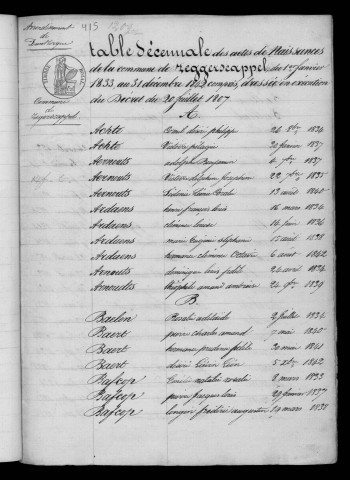 Arrondissement
de
Dunkerque
415
Commune
de
Zeggerscappel
table Décennale des actes de Naissances
de la commune de Zeggerscappel, du 1er janvier
1833 au 31 décembre 1842 compris, dressée en exécution
du Décret du 20 juillet 1807
A.
Achte philippe 1834
Achte Victoire pélagie 20 février 1837
Aernouts adolphe Benjamin 1837
Aernouts Victoire Delphine Josephine 1835
Aernouts 13 août 1840
Ardaens henri françois louis 16 mars 1836
Ardaens clémence louise 14 juin 1836
Ardaens marie Eugénie Delphine 15 avril 1838
Ardaens hermance clémence Octavie 6 avril 1842
Arnouts dominique louis fidèle 26 avril 1834
Arnoudts théophile amand ambroise 24 9bre 1839
B.
Baelen Rosalie adélaïde 2 juillet 1834
Baert pierre charles amand 7 mai 1840
Baert hermance prudence fidèle 20 mai 1841
Baert 5 1842
Bafcop Emélie natalie rosalie 8 mars 1833
Bafcop pierre françois louis 29 février 1837
Bafcop longin frédéric augustin 14 mars 1838